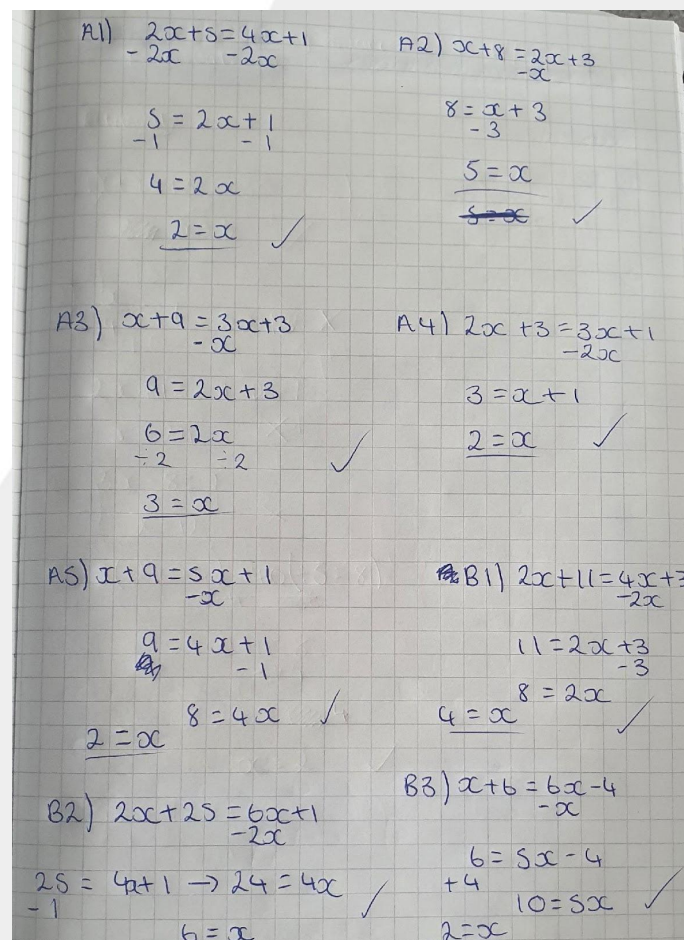 A1) 2x+5=4x+1
-2x -2x
5=2x+1
-1 -1
4=2x
2=x ✓
A2) x+8=2x+3
-x
8=x+3
-3
5=x
5=x ✓
A3) x+9=3x+3
-x
9=2x+3
6=2x
÷2 ÷2 ✓
3=x
A4) 2x+3=3x+1
-2x
3=x+1
2=x ✓
A5) x+9=5x+1
-x
9=4x+1
-1
8=4x ✓
2=x
B1) 2x+11=4x+3
-2x
11=2x+3
-3
8=2x
4=x ✓
B2) 2x+25=6x+1
-2x
25=4x+1 → 24=4x ✓
-1
6=x
B3) x+6=6x-4
-x
6=5x-4
+4
10=5x ✓
2=x